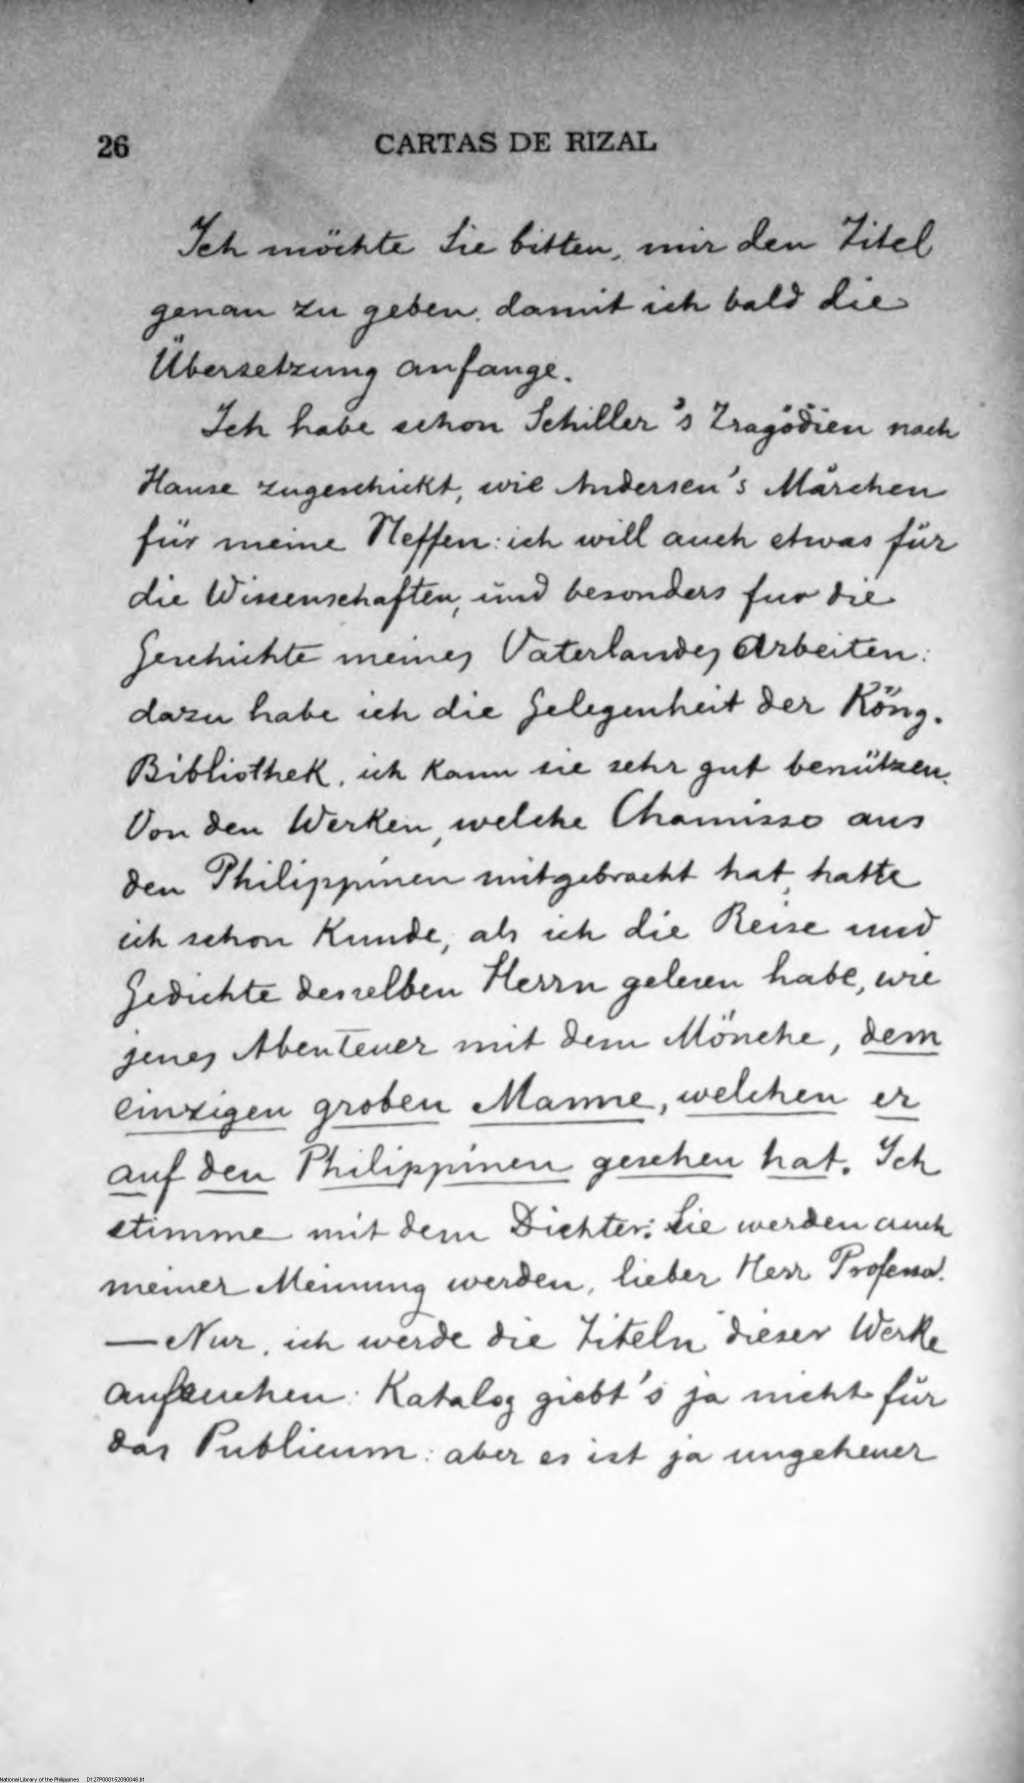 26 CARTAS DE RIZAL
Ich möchte Sie bitten, mir den Titel
genau zu geben, damit ich bald die
Übersetzung anfange.
Ich habe schon Schiller's Tragödien nach
Hause zugeschickt, wie Andersen's Märchen
für meine Neffen: ich will auch etwas für
die Wissenschaften, und besonders fur die
Geschichte meines Vaterlandes Arbeiten:
dazu habe ich die Gelegenheit der Köng.
Bibliothek, ich kann sie sehr gut benützen.
Von den Werken, welche Chamisso aus
den Philippinen mitgebracht hat, hatte
ich schon Kunde, als ich die Reise und
Gedichte desselben Herrn gelesen habe, wie
jenes Abenteuer mit dem Mönche, dem
einzigen groben Manne, welchen er
auf den Philippinen gesehen hat. Ich
stimme mit dem Dichter: Sie werden auch
meiner Meinung werden, lieber Herr Professor.
— Nur, ich werde die Titeln dieser Werke
aufsuchen: Katalog giebt's ja nicht für
das Publicum: aber es ist ja ungeheuer
National Library of the Philippines